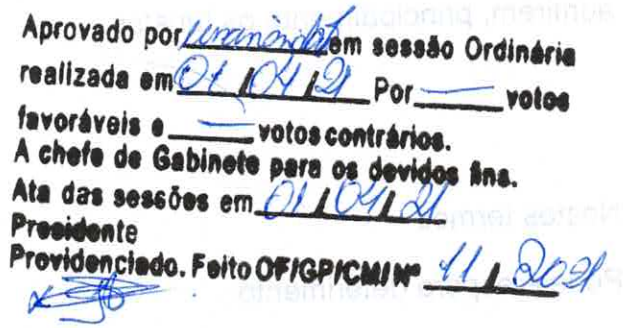 Aprovado por unanimidade em sessão Ordinária
realizada em 01 / 04 / 21 Por — votos
favoráveis e — votos contrários.
A chefe de Gabinete para os devidos fins.
Ata das sessões em 01 / 04 / 21
Presidente
Providenciado. Feito OF/GP/CMI Nº 11 / 2021